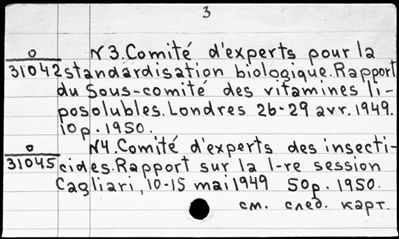 3
о N3.Comité d'experts pour la
31042 standardisation biologique.Rapport
du Sous-comité des vitamines li-
posolubles. Londres 26-29 avr. 1949.
10p. 1950.
о N4.Comité d'experts des insecti-
31045 cides.Rapport sur la I-re session
Cagliari, 10-15 mai 1949 50p. 1950.
см. след. карт.